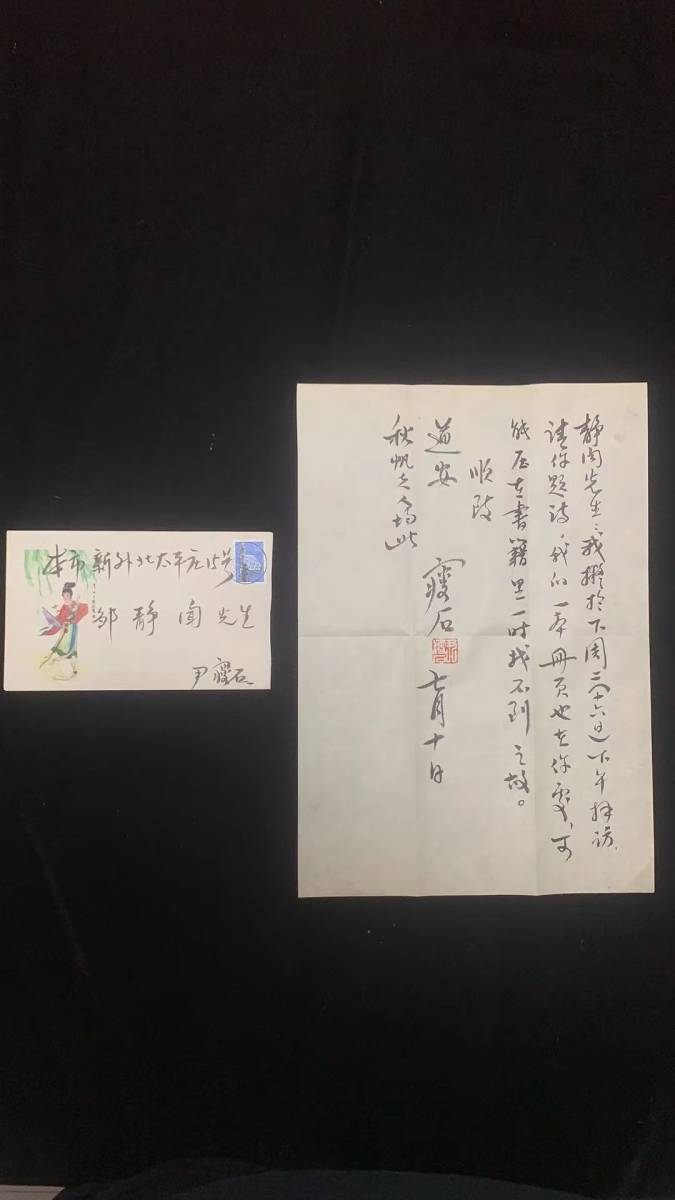 本市新外北太平庄15号
邹静闻先生
尹瘦石
静闻先生：我拟于下周二(十六日)下午拜访，
请你题诗，我的一本册页也在你处，可
能压在书籍里一时找不到之故。
顺致
道安
瘦石 七月十日
秋帆大嫂